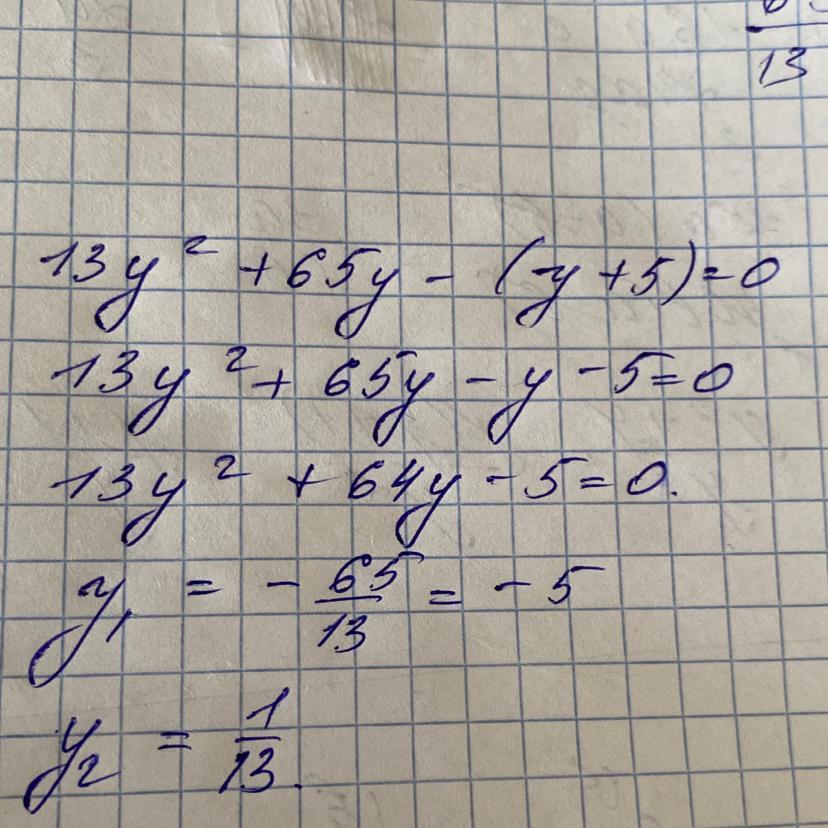 13
13y² + 65y - (y + 5) = 0
13y² + 65y - y - 5 = 0
13y² + 64y - 5 = 0.
y₁ = - 65/13 = - 5
y₂ = 1/13.